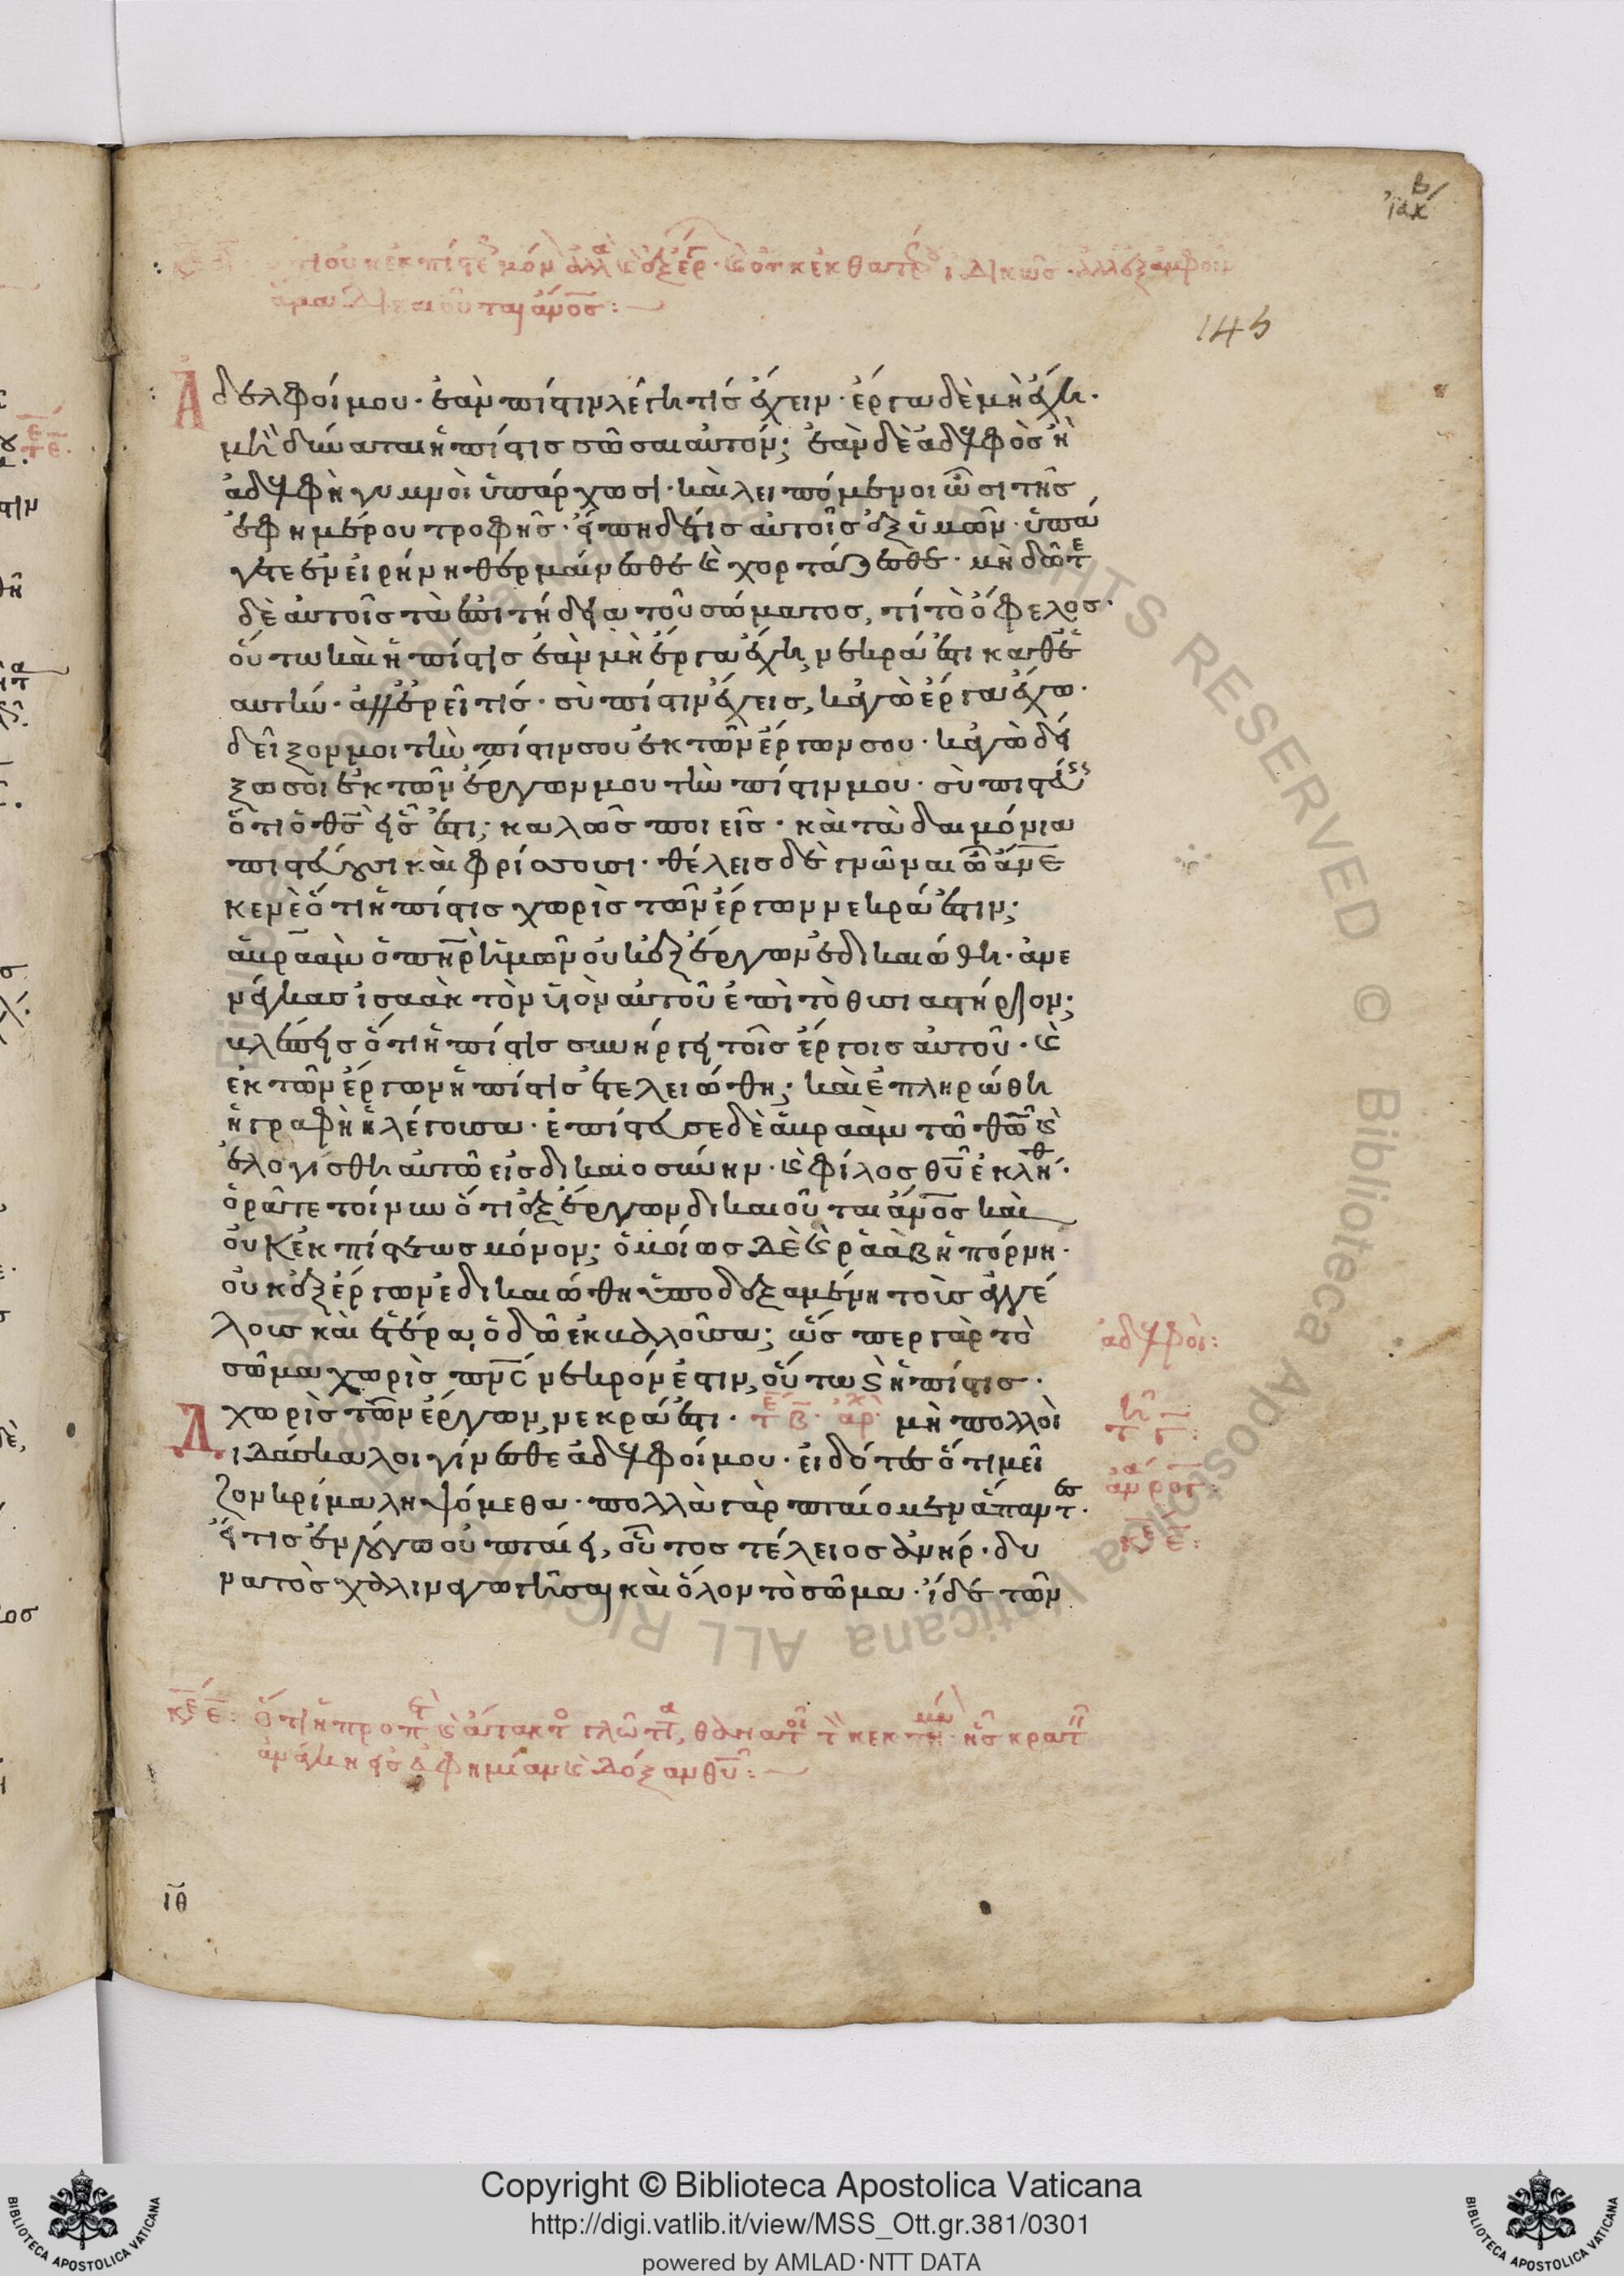 β
ἰακ
ὅτι οὐκ ἐκ πίστε μόν ἀλλὰ καὶ ἐξ ἔργ· καὶ οὐκ ἐκ θατέρου ἰδικῶσ· ἀλλ' ἐξ ἀμφοῖν
ἅμα δικαιοῦται ἄνοσ:
145
Ἀδελφοί μου· ἐὰν πίστιν λέγη τίσ ἔχειν· ἔργα δὲ μὴ ἔχη·
μὴ δύναται ἡ πίστισ σῶσαι αὐτόν; ἐὰν δὲ ἀδελφὸσ ἢ
ἀδελφὴ γυμνοὶ ὑπάρχωσι· καὶ λειπόμενοι ὦσι τῆσ
ἐφημέρου τροφῆσ· εἴπη δέ τισ αὐτοῖσ ἐξ ὑμῶν· ὑπά
γετε ἐν εἰρήνη θερμαίνεσθε καὶ χορτάζεσθε· μὴ δῶτε
δὲ αὐτοῖσ τὰ ἐπιτήδεια τοῦ σώματοσ, τί τὸ ὄφελοσ·
οὕτω καὶ ἡ πίστισ ἐὰν μὴ ἔργα ἔχη, νεκρά ἐστι καθ' ἑ
αυτήν· ἀλλ' ἐρεῖ τίσ· σὺ πίστιν ἔχεισ, κἀγὼ ἔργα ἔχω·
δεῖξον μοι τὴν πίστιν σου ἐκ τῶν ἔργων σου· κἀγὼ δεί
ξω σοὶ ἐκ τῶν ἔργων μου τὴν πίστιν μου· σὺ πιστεύεισ
ὅτι ὁ θσ εἷσ ἐστι; καλῶσ ποιεῖσ· καὶ τὰ δαιμόνια
πιστεύουσι καὶ φρίσσουσι· θέλεισ δὲ γνῶναι ὦ ἄνε
κενὲ ὅτι ἡ πίστισ χωρὶσ τῶν ἔργων νεκρά ἐστιν;
ἀβραὰμ ὁ πηρ ἡμῶν οὐκ ἐξ ἔργων ἐδικαιώθη· ἀνε
νέγκασ ἰσαὰκ τὸν υἱὸν αὐτοῦ ἐπὶ τὸ θυσιαστήριον;
βλέπεισ ὅτι ἡ πίστισ συνήργει τοῖσ ἔργοισ αὐτοῦ· καὶ
ἐκ τῶν ἔργων ἡ πίστισ ἐτελειώθη; καὶ ἐπληρώθη
ἡ γραφὴ ἡ λέγουσα· ἐπίστευσε δὲ ἀβραὰμ τῶ θῶ καὶ
ἐλογίσθη αὐτῶ εἰσ δικαιοσύνην· καὶ φίλοσ θυ ἐκλήθ·
ὁρᾶτε τοίνυν ὅτι ἐξ ἔργων δικαιοῦται ἄνοσ καὶ
οὐκ ἐκ πίστεωσ μόνον; ὁμοίωσ δὲ καὶ ῥαὰβ ἡ πόρνη·
οὐκ ἐξ ἔργων ἐδικαιώθη ὑποδεξαμένη τοὺσ ἀγγέ
λουσ καὶ ἑτέρα ὁδῶ ἐκβαλοῦσα; ὥσπερ γὰρ τὸ
σῶμα χωρὶσ πνσ νεκρόν ἐστιν, οὕτω καὶ ἡ πίστισ·
χωρὶσ τῶν ἔργων, νεκρά ἐστι· τε β· ἀρχ μὴ πολλοὶ
Διδάσκαλοι γίνεσθε ἀδελφοί μου· εἰδότεσ ὅτι μεῖ
ζον κρίμα ληψόμεθα· πολλὰ γὰρ πταίομεν ἅπαντεσ·
εἴ τισ ἐν λόγω οὐ πταίει, οὗτοσ τέλειοσ ἀνήρ· δυ
νατὸσ χαλιναγωγῆσαι καὶ ὅλον τὸ σῶμα· ἰδὲ τῶν
ἀδελφοί:
κε ε:
κε ε: ὅτι ἡ προπετὴσ καὶ ἄτακτοσ γλῶττα, θανατοῖ τὸν κεκτημένον· ἧσ κρατεῖν
ἀνάγκη εἰσ εὐφημίαν καὶ δόξαν θυ:
ιθ
Copyright © Biblioteca Apostolica Vaticana
http://digi.vatlib.it/view/MSS_Ott.gr.381/0301
powered by AMLAD·NTT DATA